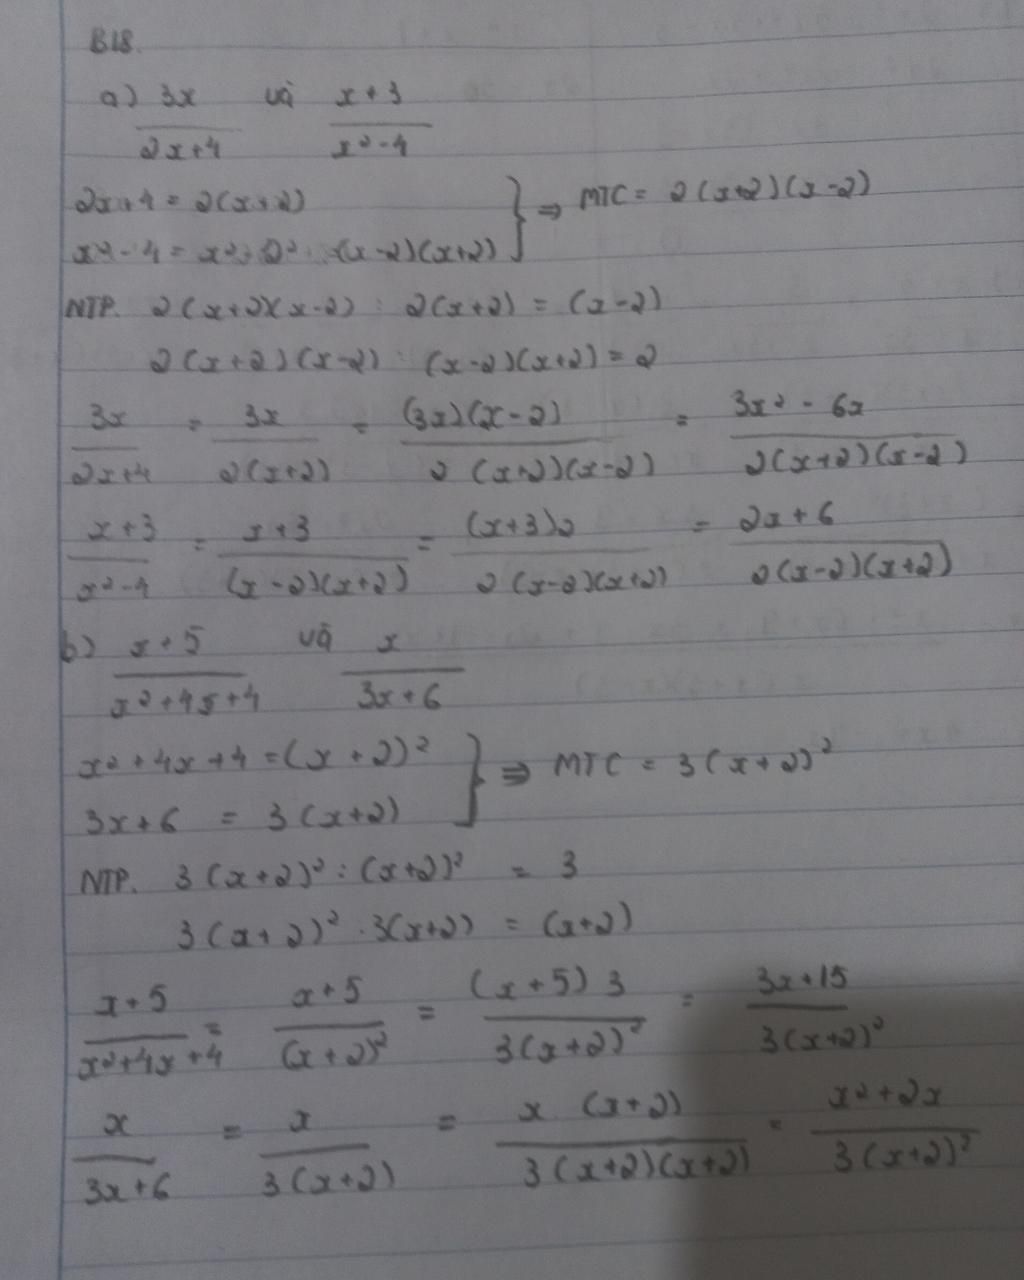 B18.
a) 3x/(2x+4) và (x+3)/(x²-4)
2x+4 = 2(x+2)
x²-4 = x²-2² = (x-2)(x+2) } ⇒ MTC = 2(x+2)(x-2)
NTP. 2(x+2)(x-2) : 2(x+2) = (x-2)
2(x+2)(x-2) : (x-2)(x+2) = 2
3x/(2x+4) = 3x/(2(x+2)) = (3x)(x-2)/(2(x+2)(x-2)) = (3x²-6x)/(2(x+2)(x-2))
(x+3)/(x²-4) = (x+3)/((x-2)(x+2)) = (x+3)2/(2(x-2)(x+2)) = (2x+6)/(2(x-2)(x+2))
b) (x+5)/(x²+4x+4) và x/(3x+6)
x²+4x+4 = (x+2)²
3x+6 = 3(x+2) } ⇒ MTC = 3(x+2)²
NTP. 3(x+2)² : (x+2)² = 3
3(x+2)² : 3(x+2) = (x+2)
(x+5)/(x²+4x+4) = (x+5)/(x+2)² = (x+5)3/(3(x+2)²) = (3x+15)/(3(x+2)²)
x/(3x+6) = x/(3(x+2)) = x(x+2)/(3(x+2)(x+2)) = (x²+2x)/(3(x+2)²)